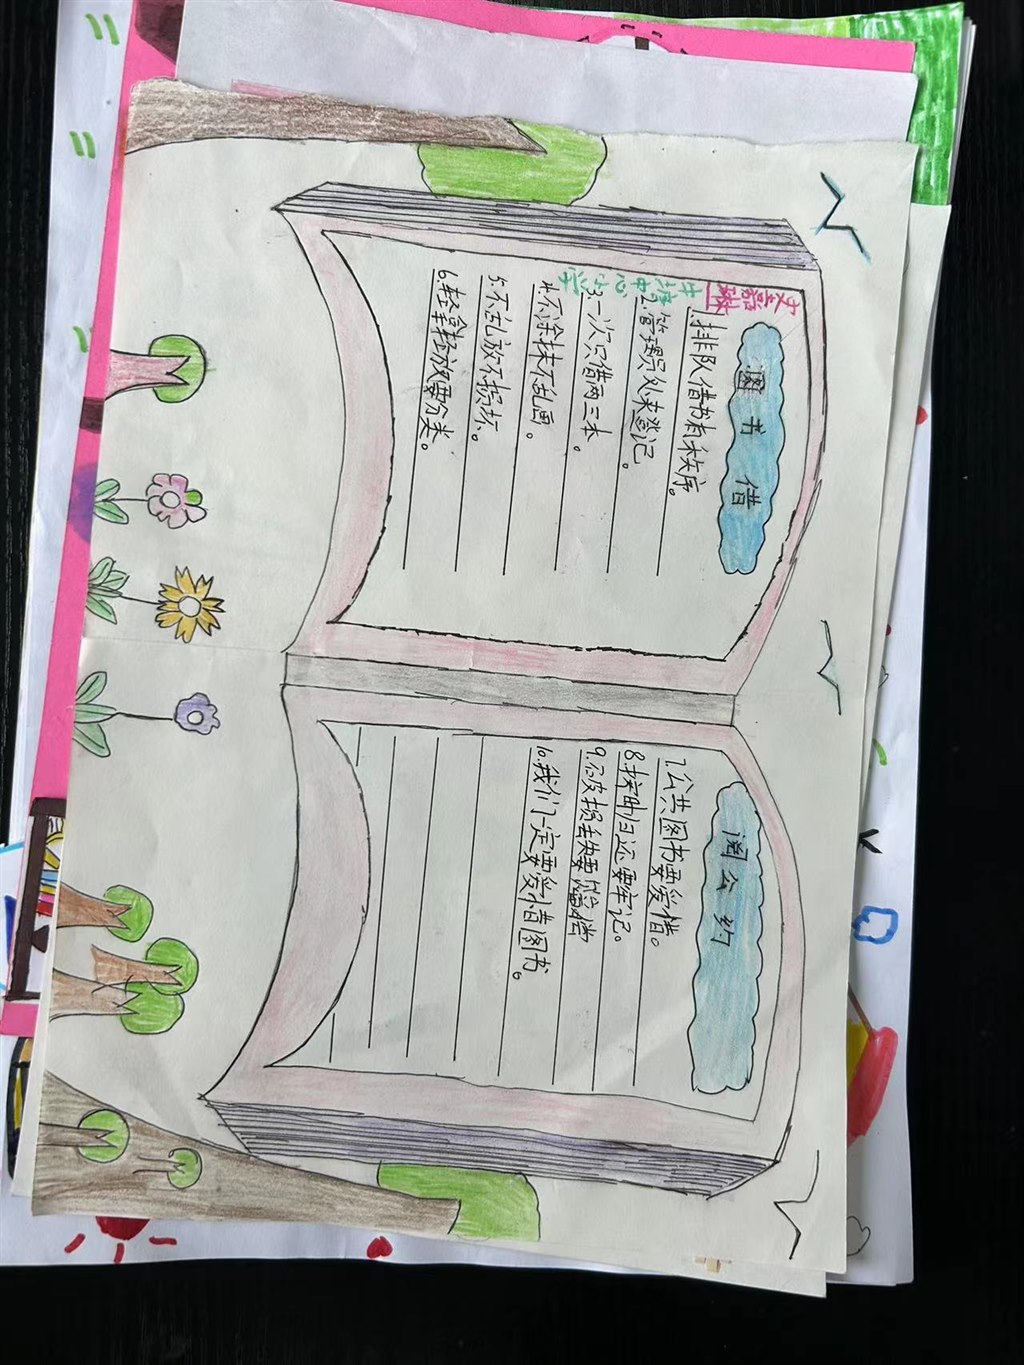 图书借
1.排队借书有秩序。
2.管理员处来登记。
3.一次只借两三本。
4.不涂抹不乱画。
5.不乱放不损坏。
6.轻拿轻放要分类。
阅公约
7.公共图书要爱惜。
8.按时归还要牢记。
9.如皮损丢失要赔偿
10.我们一定要爱惜图书。